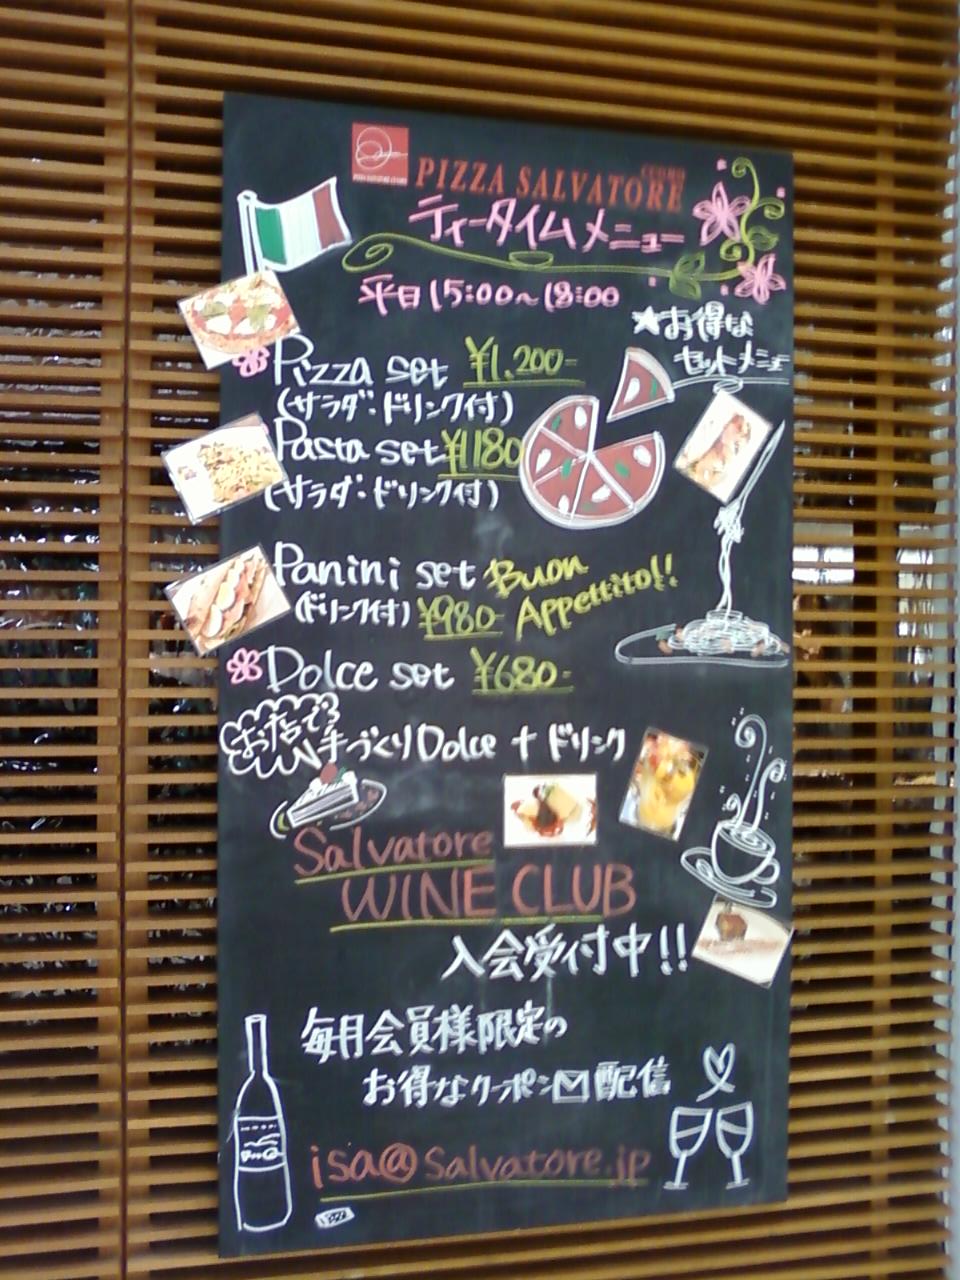 CUOMO
PIZZA SALVATORE
ティータイムメニュー
平日 15:00~18:00
★お得な
セットメニュー
Pizza set ¥1,200-
(サラダ・ドリンク付)
Pasta set ¥1180
(サラダ・ドリンク付)
Panini set
(ドリンク付) ¥980-
Buon
Appettito!!
Dolce set ¥680-
お店で
手づくりDolce + ドリンク
Salvatore
WINE CLUB
入会受付中!!
毎月会員様限定の
お得なクーポン配信
isa@salvatore.jp